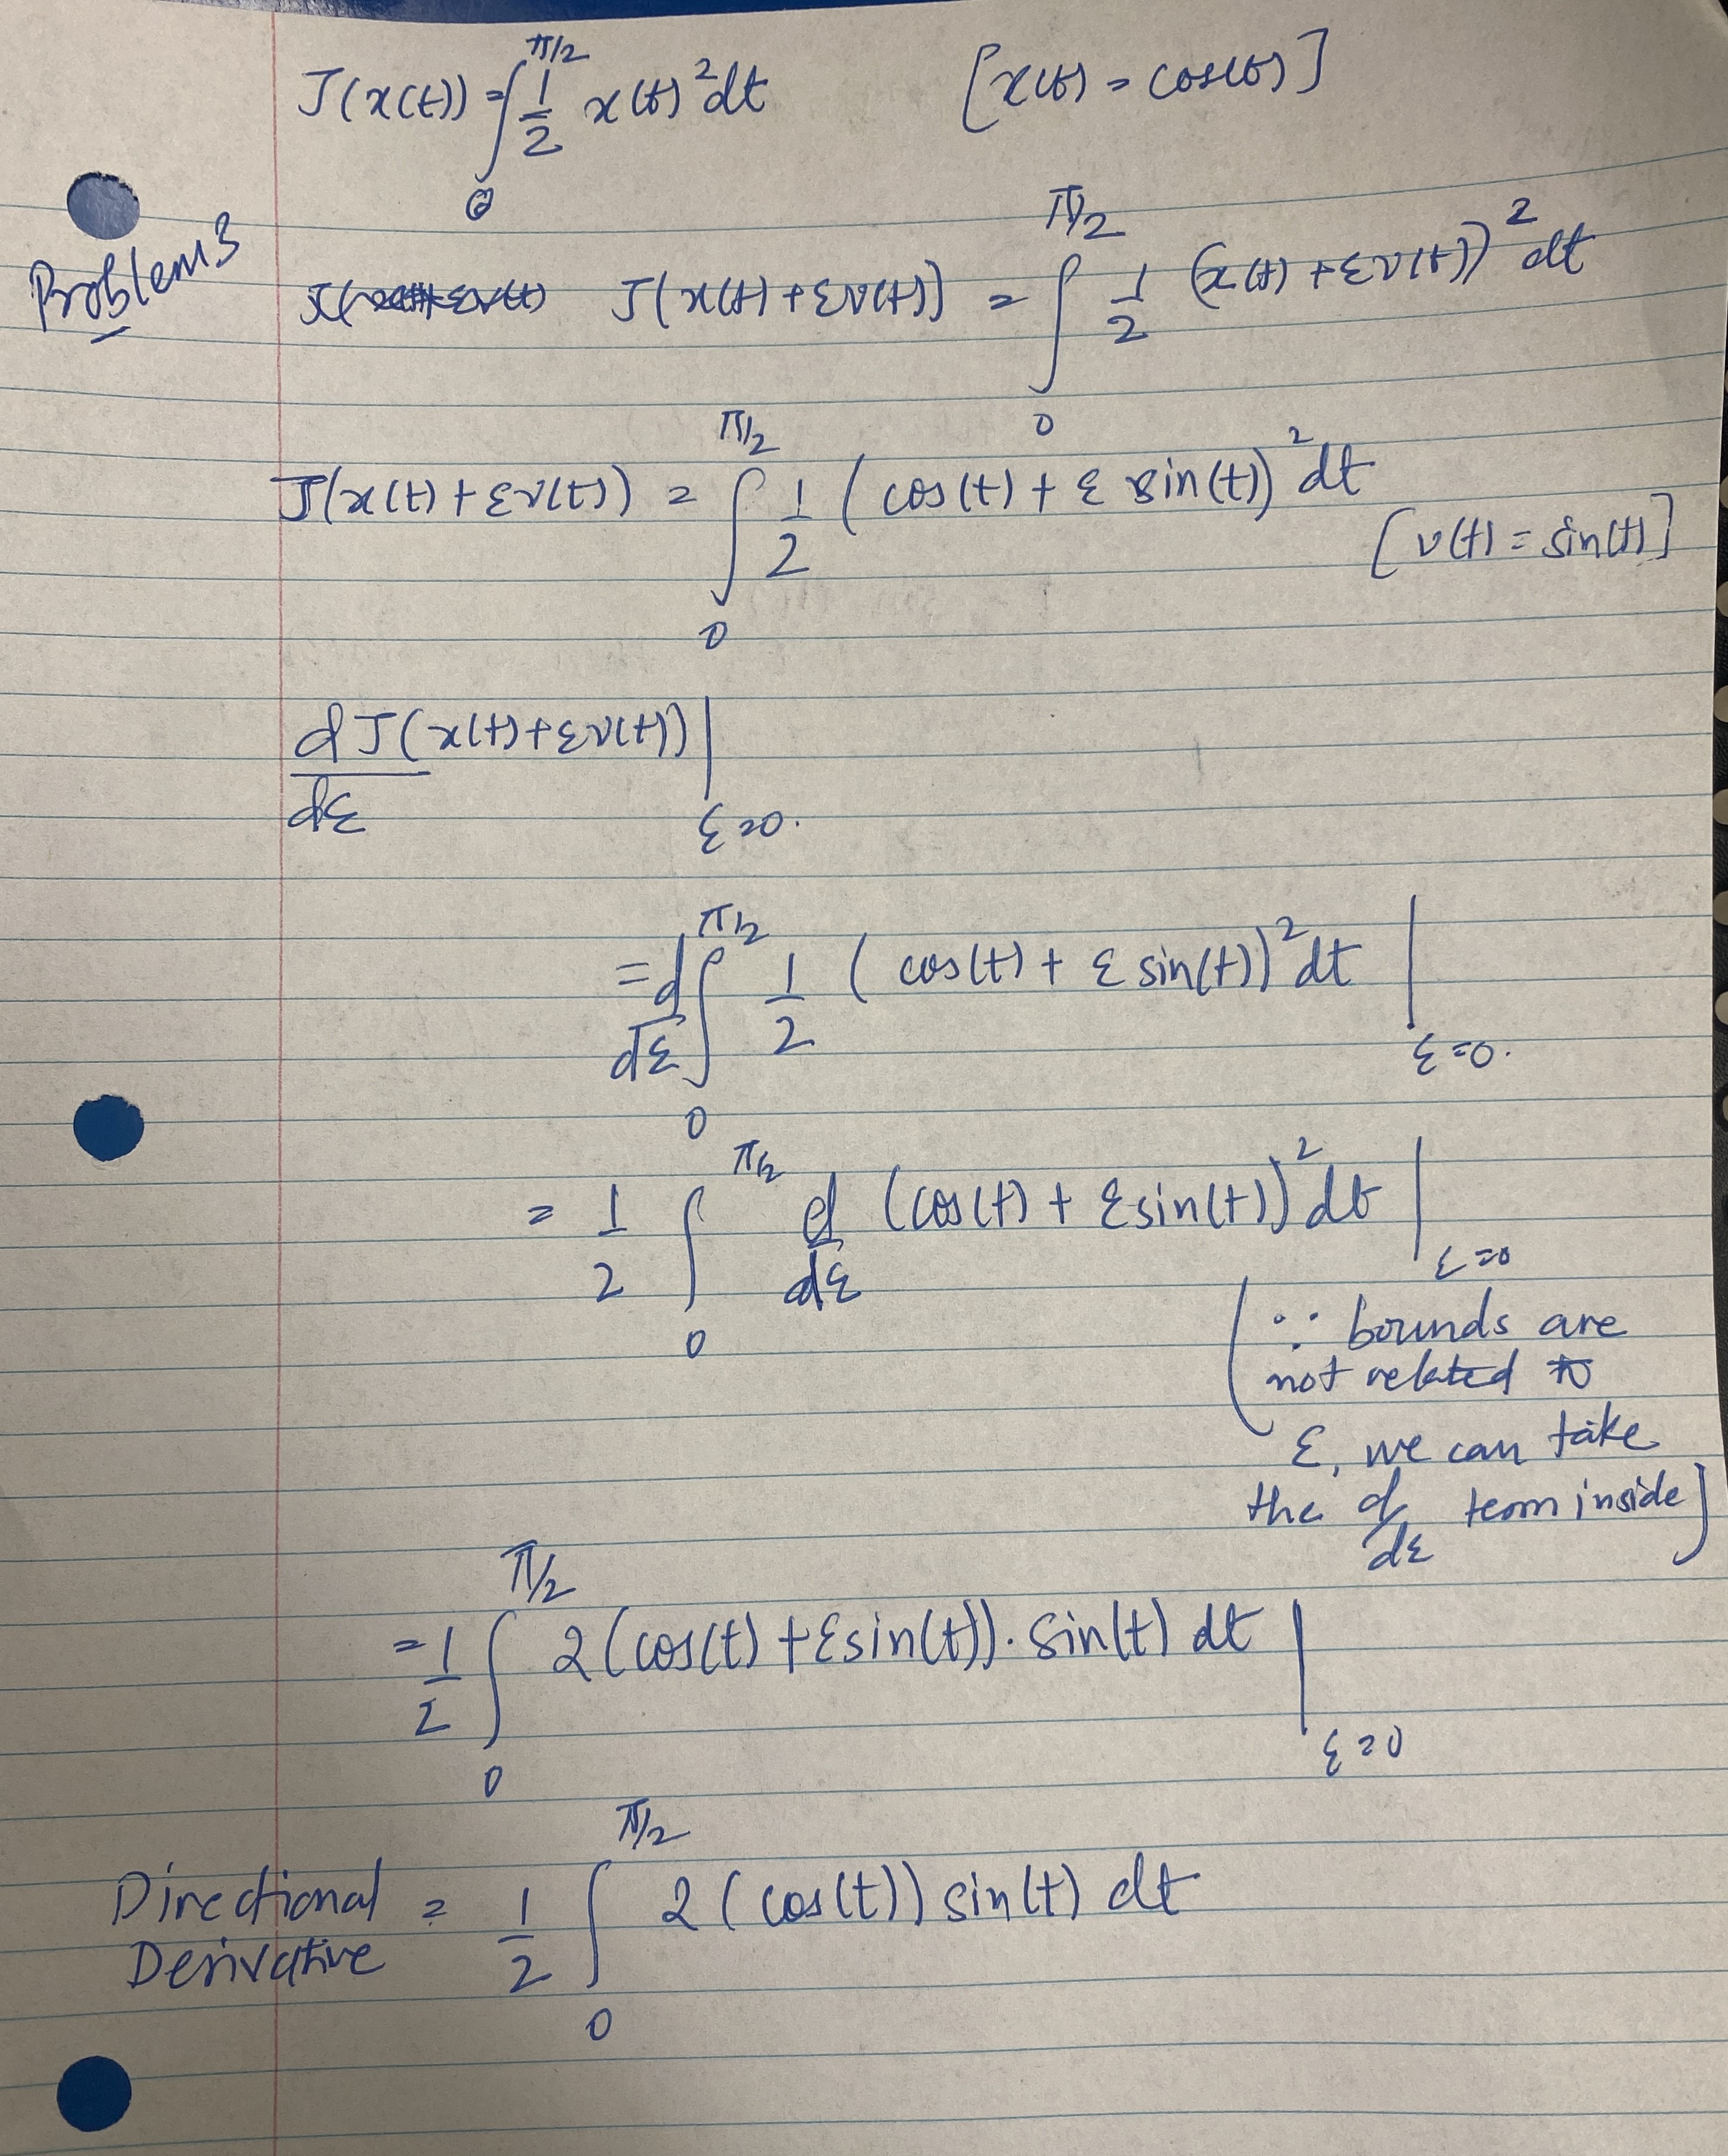 J(x(t)) = ∫₀^{π/2} 1/2 x(t)² dt [x(t) = cos(t)]
Problem 3
J(x(t)+εv(t)) J(x(t)+εv(t)) = ∫₀^{π/2} 1/2 (x(t)+εv(t))² dt
J(x(t)+εv(t)) = ∫₀^{π/2} 1/2 (cos(t)+ε sin(t))² dt
[v(t) = sin(t)]
dJ(x(t)+εv(t))/dε |_{ε=0.}
= d/dε ∫₀^{π/2} 1/2 (cos(t)+ε sin(t))² dt |_{ε=0.}
= 1/2 ∫₀^{π/2} d/dε (cos(t)+ε sin(t))² dt |_{ε=0}
(∵ bounds are
not related to
ε, we can take
the d/dε term inside]
= 1/2 ∫₀^{π/2} 2(cos(t)+ε sin(t)).sin(t) dt |_{ε=0}
Directional
Derivative = 1/2 ∫₀^{π/2} 2(cos(t)) sin(t) dt